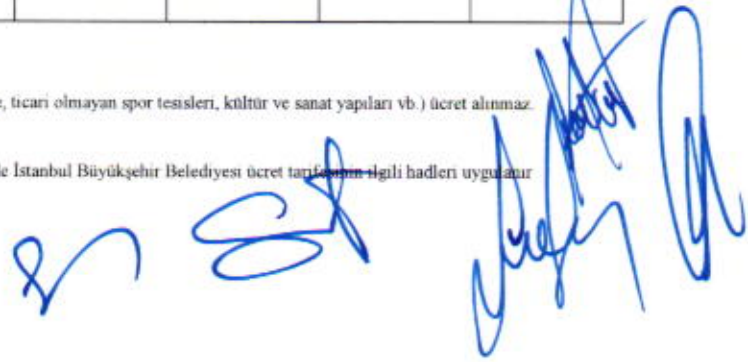 , ticari olmayan spor tesisleri, kültür ve sanat yapıları vb.) ücret alınmaz.
e İstanbul Büyükşehir Belediyesi ücret tarifesinin ilgili hadleri uygulanır